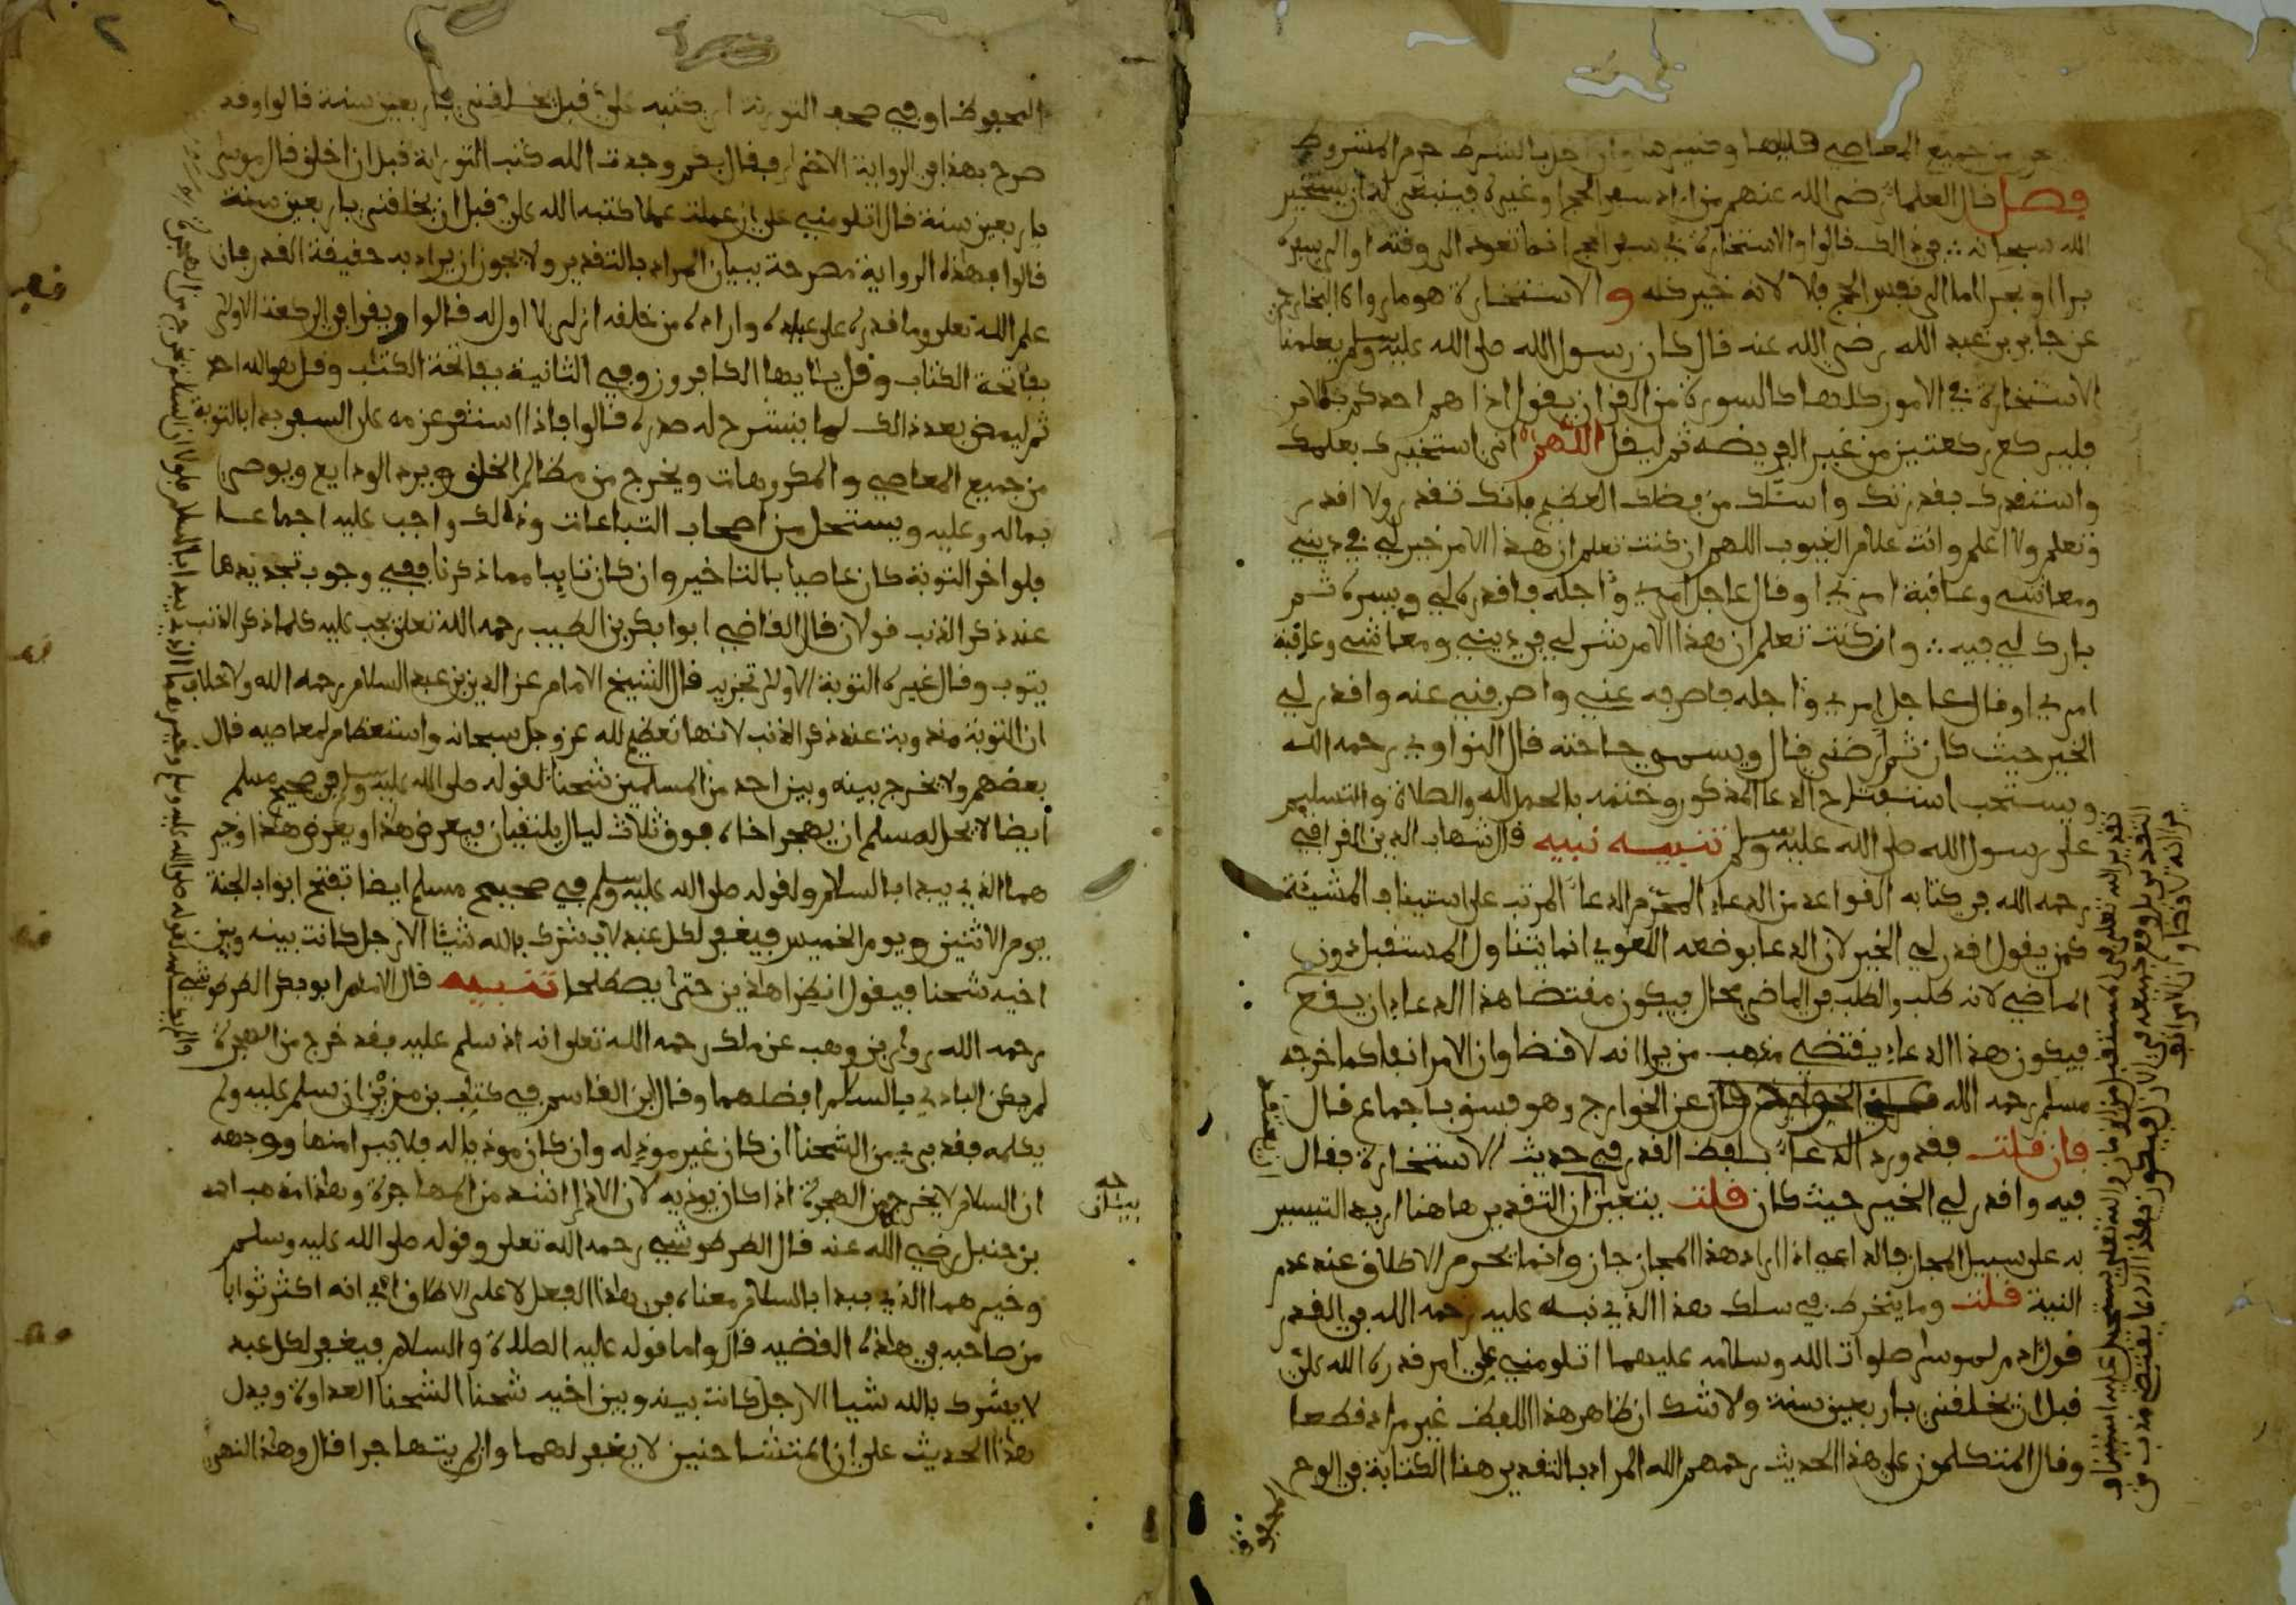 من جميع المعاصي قليلها وكثيرها وان اخل بالشرط حرم المشروط
فصل قال العلماء رضي الله عنهم من اراد سفر الحج او غيره فينبغي له ان يستخير
الله سبحانه في ذالك قالوا والاستخارة في سفر الحج انما تعود الى وقته او الى سيره
برا او بحرا اما الى نفس الحج فلا لانه خير كله والاستخارة هو ما رواه البخاري
عن جابر بن عبد الله رضي الله عنه قال كان رسول الله صلى الله عليه وسلم يعلمنا
الاستخارة في الامور كلها كالسورة من القرءان يقول اذا هم احدكم بالامر
فليركع ركعتين من غير الفريضه ثم ليقل اللهم اني استخيرك بعلمك
واستقدرك بقدرتك واسئلك من فضلك العظيم فانك تقدر ولا اقدر
وتعلم ولا اعلم وانت علام الغيوب اللهم ان كنت تعلم ان هذا الامر خير لي في ديني
ومعاشي وعاقبة امري او قال عاجل امري وءاجله فاقدره لي ويسره ثم
بارك لي فيه وان كنت تعلم ان هذا الامر شر لي في ديني ومعاشي وعاقبة
امري او قال عاجل امري وءاجله فاصرفه عني واصرفني عنه واقدر لي
الخير حيث كان ثم ارضني قال ويسمي حاجته قال النواوي رحمه الله
ويستحب استفتاح الدعا المذكور وختمه بالحمد لله والصلاة والتسليم
على رسول الله صلى الله عليه وسلم تنبيه نبيه قال شهاب الدين القرافي
رحمه الله في كتابه القواعد من الدعاء المحرم الدعاء المرتب على استيناف المشيئة
كمن يقول اقدر لي الخير لان الدعا بوضعه اللغوي انما يتناول المستقبل دون
الماضي لانه طلب والطلب في الماضي محال فيكون مقتضا هذا الدعاء ان يقع
تقدير الله تعلى في المستقبل من الزمان والله تعلى يستحيل عليه استيناف
التقدير بل وقع جميعه في الازل فيكون هذا الدعا يقتضي مذهب من
يرا انه لا قضا وان الامر انف
فيكون هذا الدعاء يقتضي مذهب من يرا انه لا قضا وان الامر انف كما خرجه
مسلم رحمه الله عن الخوارج وهو فسق باجماع قال
فان قلت فقد ورد الدعاء بلفظ القدر في حديث الاستخارة فقال
فيه واقدر لي الخير حيث كان قلت يتعين ان التقدير هاهنا اريد التيسير
به على سبيل المجاز فالداعي اذا اراد هذا المجاز جاز وانما يحرم الاطلاق عند عدم
النية قلت وما ينخرط في سلك هذا الذي نبه عليه رحمه الله في القدر
قول ءادم لموسى صلوات الله وسلامه عليهما اتلومني على امر قدره الله علي
قبل ان يخلقني باربعين سنة ولا شك ان ظاهر هذا اللفظ غير مراد قطعا
وقال المتكلمون على هذا الحديث رحمهم الله المراد بالتقدير هنا الكتابة في اللوح
المحفوظ
المحفوظ او في صحف التورية اي كتبه علي قبل خلقي باربعين سنة قالوا وقد
صرح بهذا في الرواية الاخرى فقال بكم وجدت الله كتب التوراية قبل ان اخلق قال موسى
باربعين سنة قال اتلومني على ان عملت عملا كتبه الله علي قبل ان يخلقني باربعين سنة
قالوا فهذه الرواية مصرحة ببيان المراد بالتقدير ولا يجوز ان يراد به حقيقة القدر فان
علم الله تعلى وما قدره على عباده واراده من خلقه ازلي لا اول له قالوا ويقرا في الركعة الاولى
بفاتحة الكتاب وقل يايها الكافرون وفي الثانية بفاتحة الكتب وقل هو الله احد
ثم ليمض بعد ذالك لما ينشرح له صدره قالوا فاذا استقر عزمه على السفر بدا بالتوبة
من جميع المعاصي والمكروهات ويخرج من مظالم الخلق ويرد الودايع ويوصي
بماله وعليه ويستحل من اصحاب التباعات وذالك واجب عليه اجماعا
فلو اخر التوبة كان عاصيا بالتاخير وان كان تايبا مما ذكرنا ففي وجوب تجديدها
عند ذكر الذنب قولان قال القاضي ابوا بكر بن الطيب رحمه الله تعلى يجب عليه كلما ذكر الذنب
يتوب وقال غيره التوبة الاولى تجزيه قال الشيخ الامام عز الدين بن عبد السلام رحمه الله ولا خلاف
ان التوبة مندوبة عند ذكر الذنب لانها تعظيم لله عز وجل سبحانه واستعظام لمعاصيه قال
بعضهم ولا يخرج بينه وبين احد من المسلمين شحنا لقوله صلى الله عليه وسلم في صحيح مسلم
ايضا لا يحل لمسلم ان يهجر اخاه فوق ثلاث ليال يلتقيان فيعرض هذا ويعرض هذا وخير
هما الذي يبدا بالسلام ولقوله صلى الله عليه وسلم في صحيح مسلم ايضا تفتح ابواب الجنة
يوم الاثنين ويوم الخميس فيغفر لكل عبد لا يشرك بالله شيئا الا رجل كانت بينه وبين
اخيه شحنا فيقول انظرا هاذين حتى يصطلحا تنبيه قال الامام ابو بكر الطرطوشي
رحمه الله روى ابن وهب عن ملك رحمه الله تعلى انه اذ سلم عليه فقد خرج من الهجرة
لم يكن البادي بالسلام افضلهما وقال ابن القاسم في كتاب بن مزين ان سلم عليه ولم
يكلمه فقد بري من الشحنا ان كان غير موذ له وان كان موذيا له فلا يبرا منها ووجهه
ان السلام لا يخرج من الهجرة اذا كان يوذيه لان الاذا اشد من المهاجرة وهذا مذهب احمد
بيان
بن حنبل رضي الله عنه قال الطرطوشي رحمه الله تعلى وقوله صلى الله عليه وسلم
وخيرهما الذي يبدا بالسلام معناه في هذا الفعل لا على الاطلاق اي انه اكثر ثوابا
من صاحبه في هاذه القضيه قال واما قوله عليه الصلاة والسلام فيغفر لكل عبد
لا يشرك بالله شيا الا رجل كانت بينه وبين اخيه شحنا الشحنا العداوة ويدل
هذا الحديث على ان المتشاحنين لا يغفر لهما وان لم يتهاجرا قال وهذا النهي